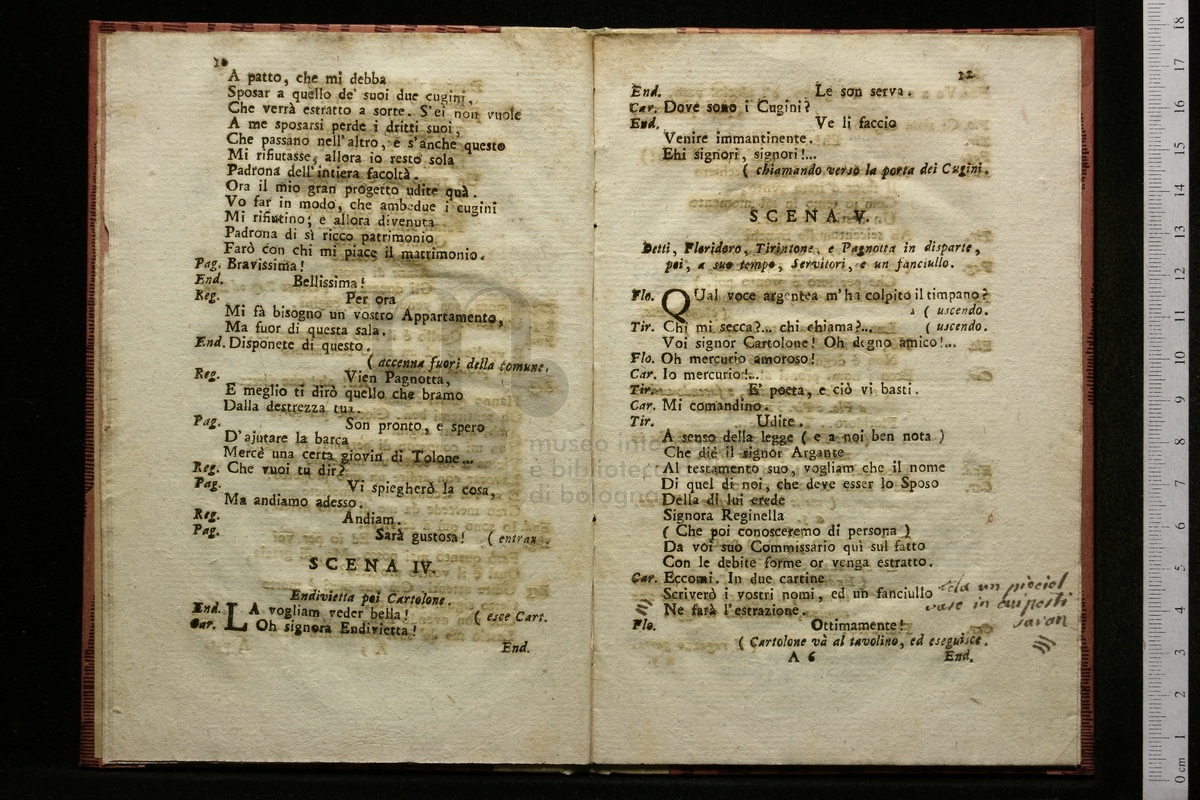 10
A patto, che mi debba
Sposar a quello de' suoi due cugini,
Che verrà estratto a sorte. S'ei non vuole
A me sposarsi perde i dritti suoi,
Che passano nell'altro, e s'anche questo
Mi rifiutasse, allora io resto sola
Padrona dell'intiera facoltà.
Ora il mio gran progetto udite quà.
Vo far in modo, che ambedue i cugini
Mi rifiutino; e allora divenuta
Padrona di sì ricco patrimonio
Farò con chi mi piace il matrimonio.
Pag. Bravissima!
End. Bellissima!
Reg. Per ora
Mi fà bisogno un vostro Appartamento,
Ma fuor di questa sala.
End. Disponete di questo.
( accenna fuori della comune.
Reg. Vien Pagnotta,
E meglio ti dirò quello che bramo
Dalla destrezza tua.
Pag. Son pronto, e spero
D'ajutare la barca
Mercè una certa giovin di Tolone...
Reg. Che vuoi tu dir?
Pag. Vi spiegherò la cosa,
Ma andiamo adesso.
Reg. Andiam.
Pag. Sarà gustosa! ( entran.
SCENA IV.
Endivietta poi Cartolone.
End. LA vogliam veder bella! ( esce Cart.
Car. Oh signora Endivietta!
End.
11
End. Le son serva.
Car. Dove sono i Cugini?
End. Ve li faccio
Venire immantinente.
Ehi signori, signori!...
( chiamando verso la porta dei Cugini.
SCENA V.
Detti, Floridoro, Tirintone, e Pagnotta in disparte,
poi, a suo tempo, Servitori, e un fanciullo.
Flo. QUal voce argentea m'ha colpito il timpano?
( uscendo.
Tir. Chi mi secca?... chi chiama?... ( uscendo.
Voi signor Cartolone! Oh degno amico!...
Flo. Oh mercurio amoroso!
Car. Io mercurio!...
Tir. E' poeta, e ciò vi basti.
Car. Mi comandino.
Tir. Udite.
A senso della legge ( e a noi ben nota )
Che diè il signor Argante
Al testamento suo, vogliam che il nome
Di quel di noi, che deve esser lo Sposo
Della di lui erede
Signora Reginella
( Che poi conosceremo di persona )
Da voi suo Commissario quì sul fatto
Con le debite forme or venga estratto.
Car. Eccomi. In due cartine
Scriverò i vostri nomi, ed un fanciullo
Ne farà l'estrazione.
da un picciol
vase in cui posti
saran
Flo. Ottimamente!
( Cartolone và al tavolino, ed eseguisce.
A 6 End.
museo inte
e bibliotec
di bologna
18
17
16
15
14
13
12
11
10
9
8
7
6
5
4
3
2
1
0 cm